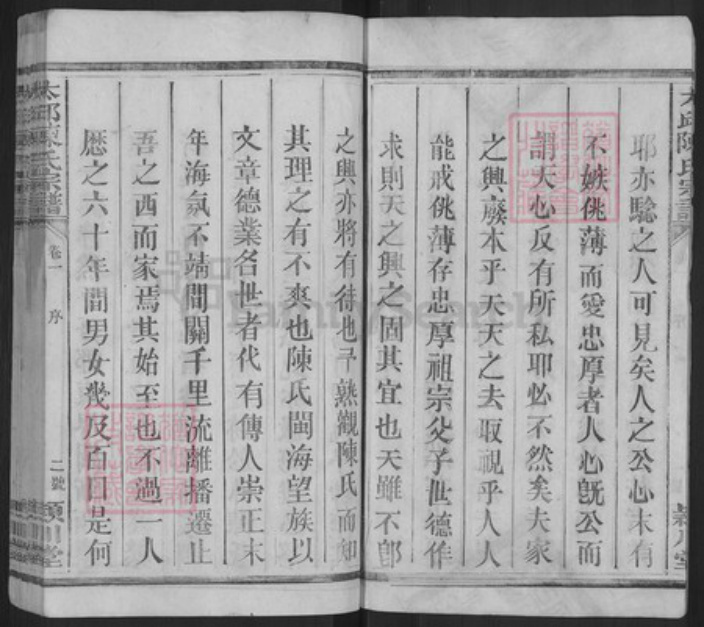 太邱陳氏宗譜
潁川堂
耶亦驗之人可見矣人之公心未有
不嫉佻薄而愛忠厚者人心既公而
謂天心反有所私耶必不然矣夫家
之興廢本乎天天之去取視乎人人
能戒佻薄存忠厚祖宗父子世德作
求則天之興之固其宜也天雖不卽
之興亦將有待也予熟觀陳氏而知
其理之有不爽也陳氏閩海望族以
文章德業名世者代有傳人崇正末
年海氛不靖間關千里流離播遷止
吾之西而家焉其始至也不過一人
歷之六十年間男女幾及百口是何
太邱陳氏宗譜
卷一
序
二號
潁川堂
FamilySearch